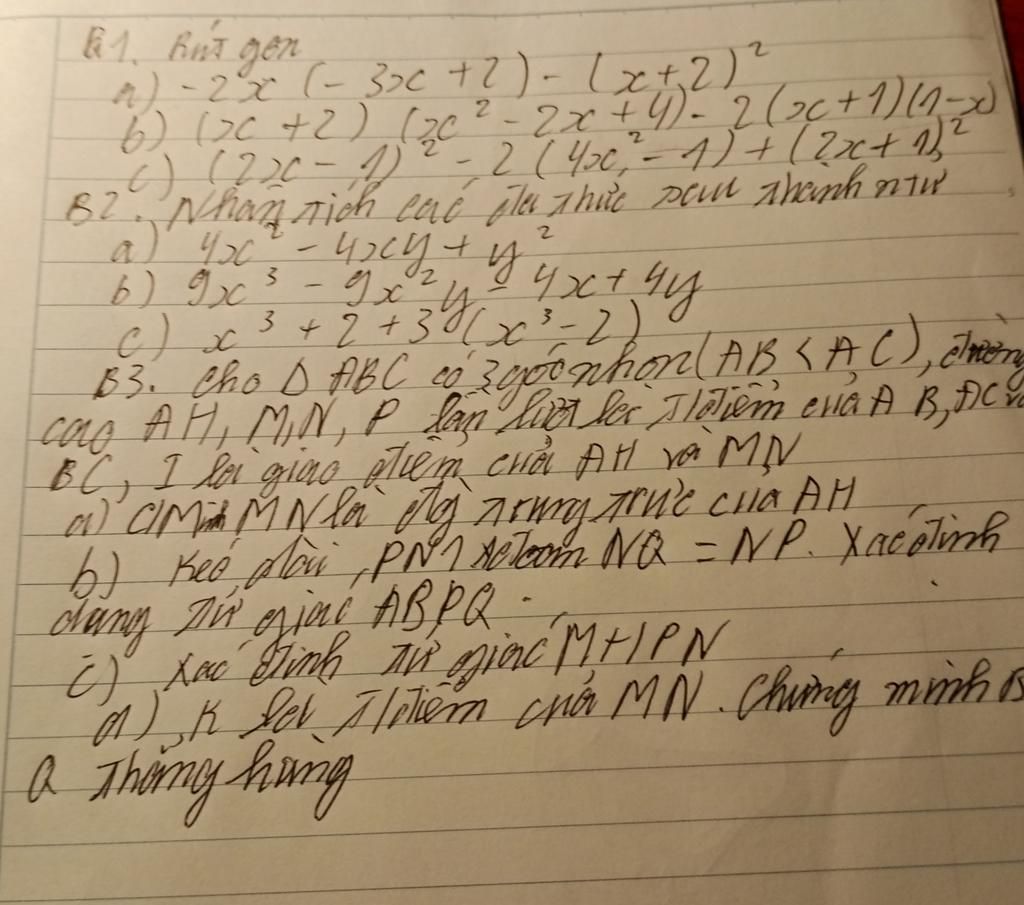 B1. Rút gọn
a) -2x (-3x+2) - (x+2)²
b) (x+2) (x² - 2x+4) - 2(x+1)(1-x)
c) (2x-1)² - 2(4x²-1)+(2x+1)²
B2. Nhân tích các đa thức sau thành ntử
a) 4x² - 4xy + y²
b) 9x³ - 9x²y - 4x + 4y
c) x³ + 2 + 3(x³-2)
B3. cho Δ ABC có 3 góc nhọn (AB < AC), đường
cao AH, M, N, P lần lượt là T/điểm của AB, AC và
BC, I là giao điểm của AH và MN
a) C/M MN là đg trung trực của AH
b) Kéo dài PN NQ = NP. Xác định
dạng tứ giác ABPQ.
c) Xác định tứ giác MHPN
d) K là T/điểm của MN. Chứng minh B
Q thẳng hàng